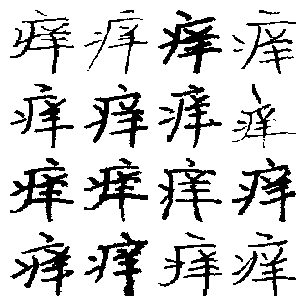 痒痒痒痒
痒痒痒痒
痒痒痒痒
痒痒痒痒